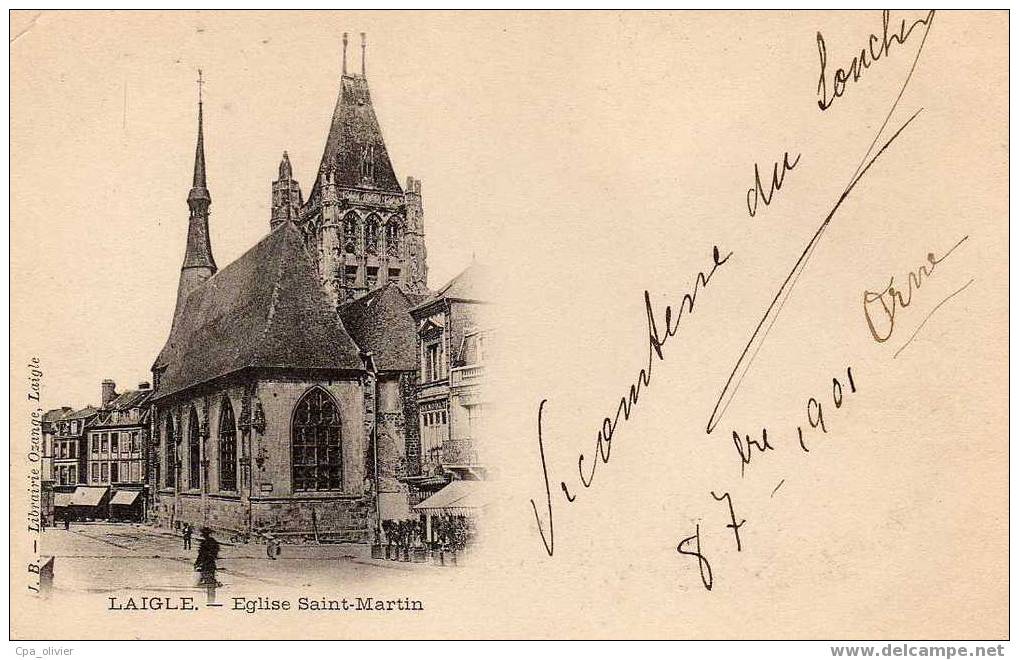 J. B. — Librairie Ozange, Laigle
LAIGLE. — Eglise Saint-Martin
Vicomtesse du
Orne
8 7bre 1901
Cpa_olivier
www.delcampe.net